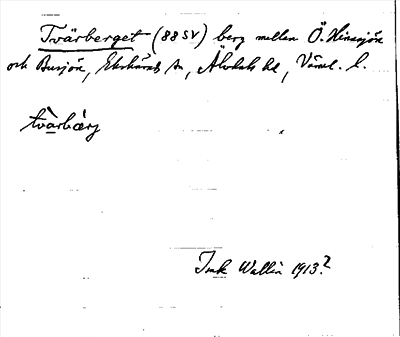 Tvärberget (88 SV) berg mellan Ö. Hinnsjön
och Busjön, Ekshärads sn, Älvdals hd, Värml. l.
tvä̀rbærj
Wallin 1913?